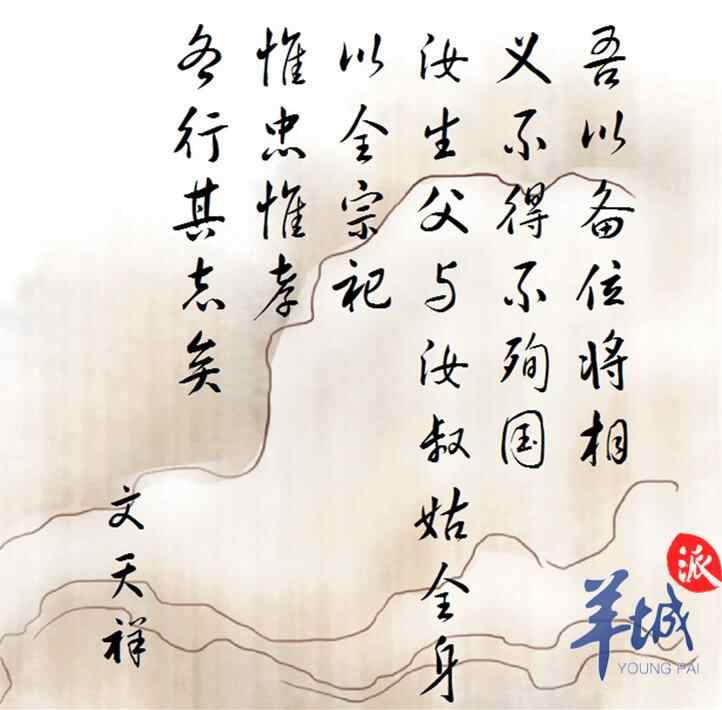 吾以备位将相
义不得不殉国
汝生父与汝叔姑全身
以全宗祀
惟忠惟孝
各行其志矣
文天祥
派
羊城
YOUNG PAI